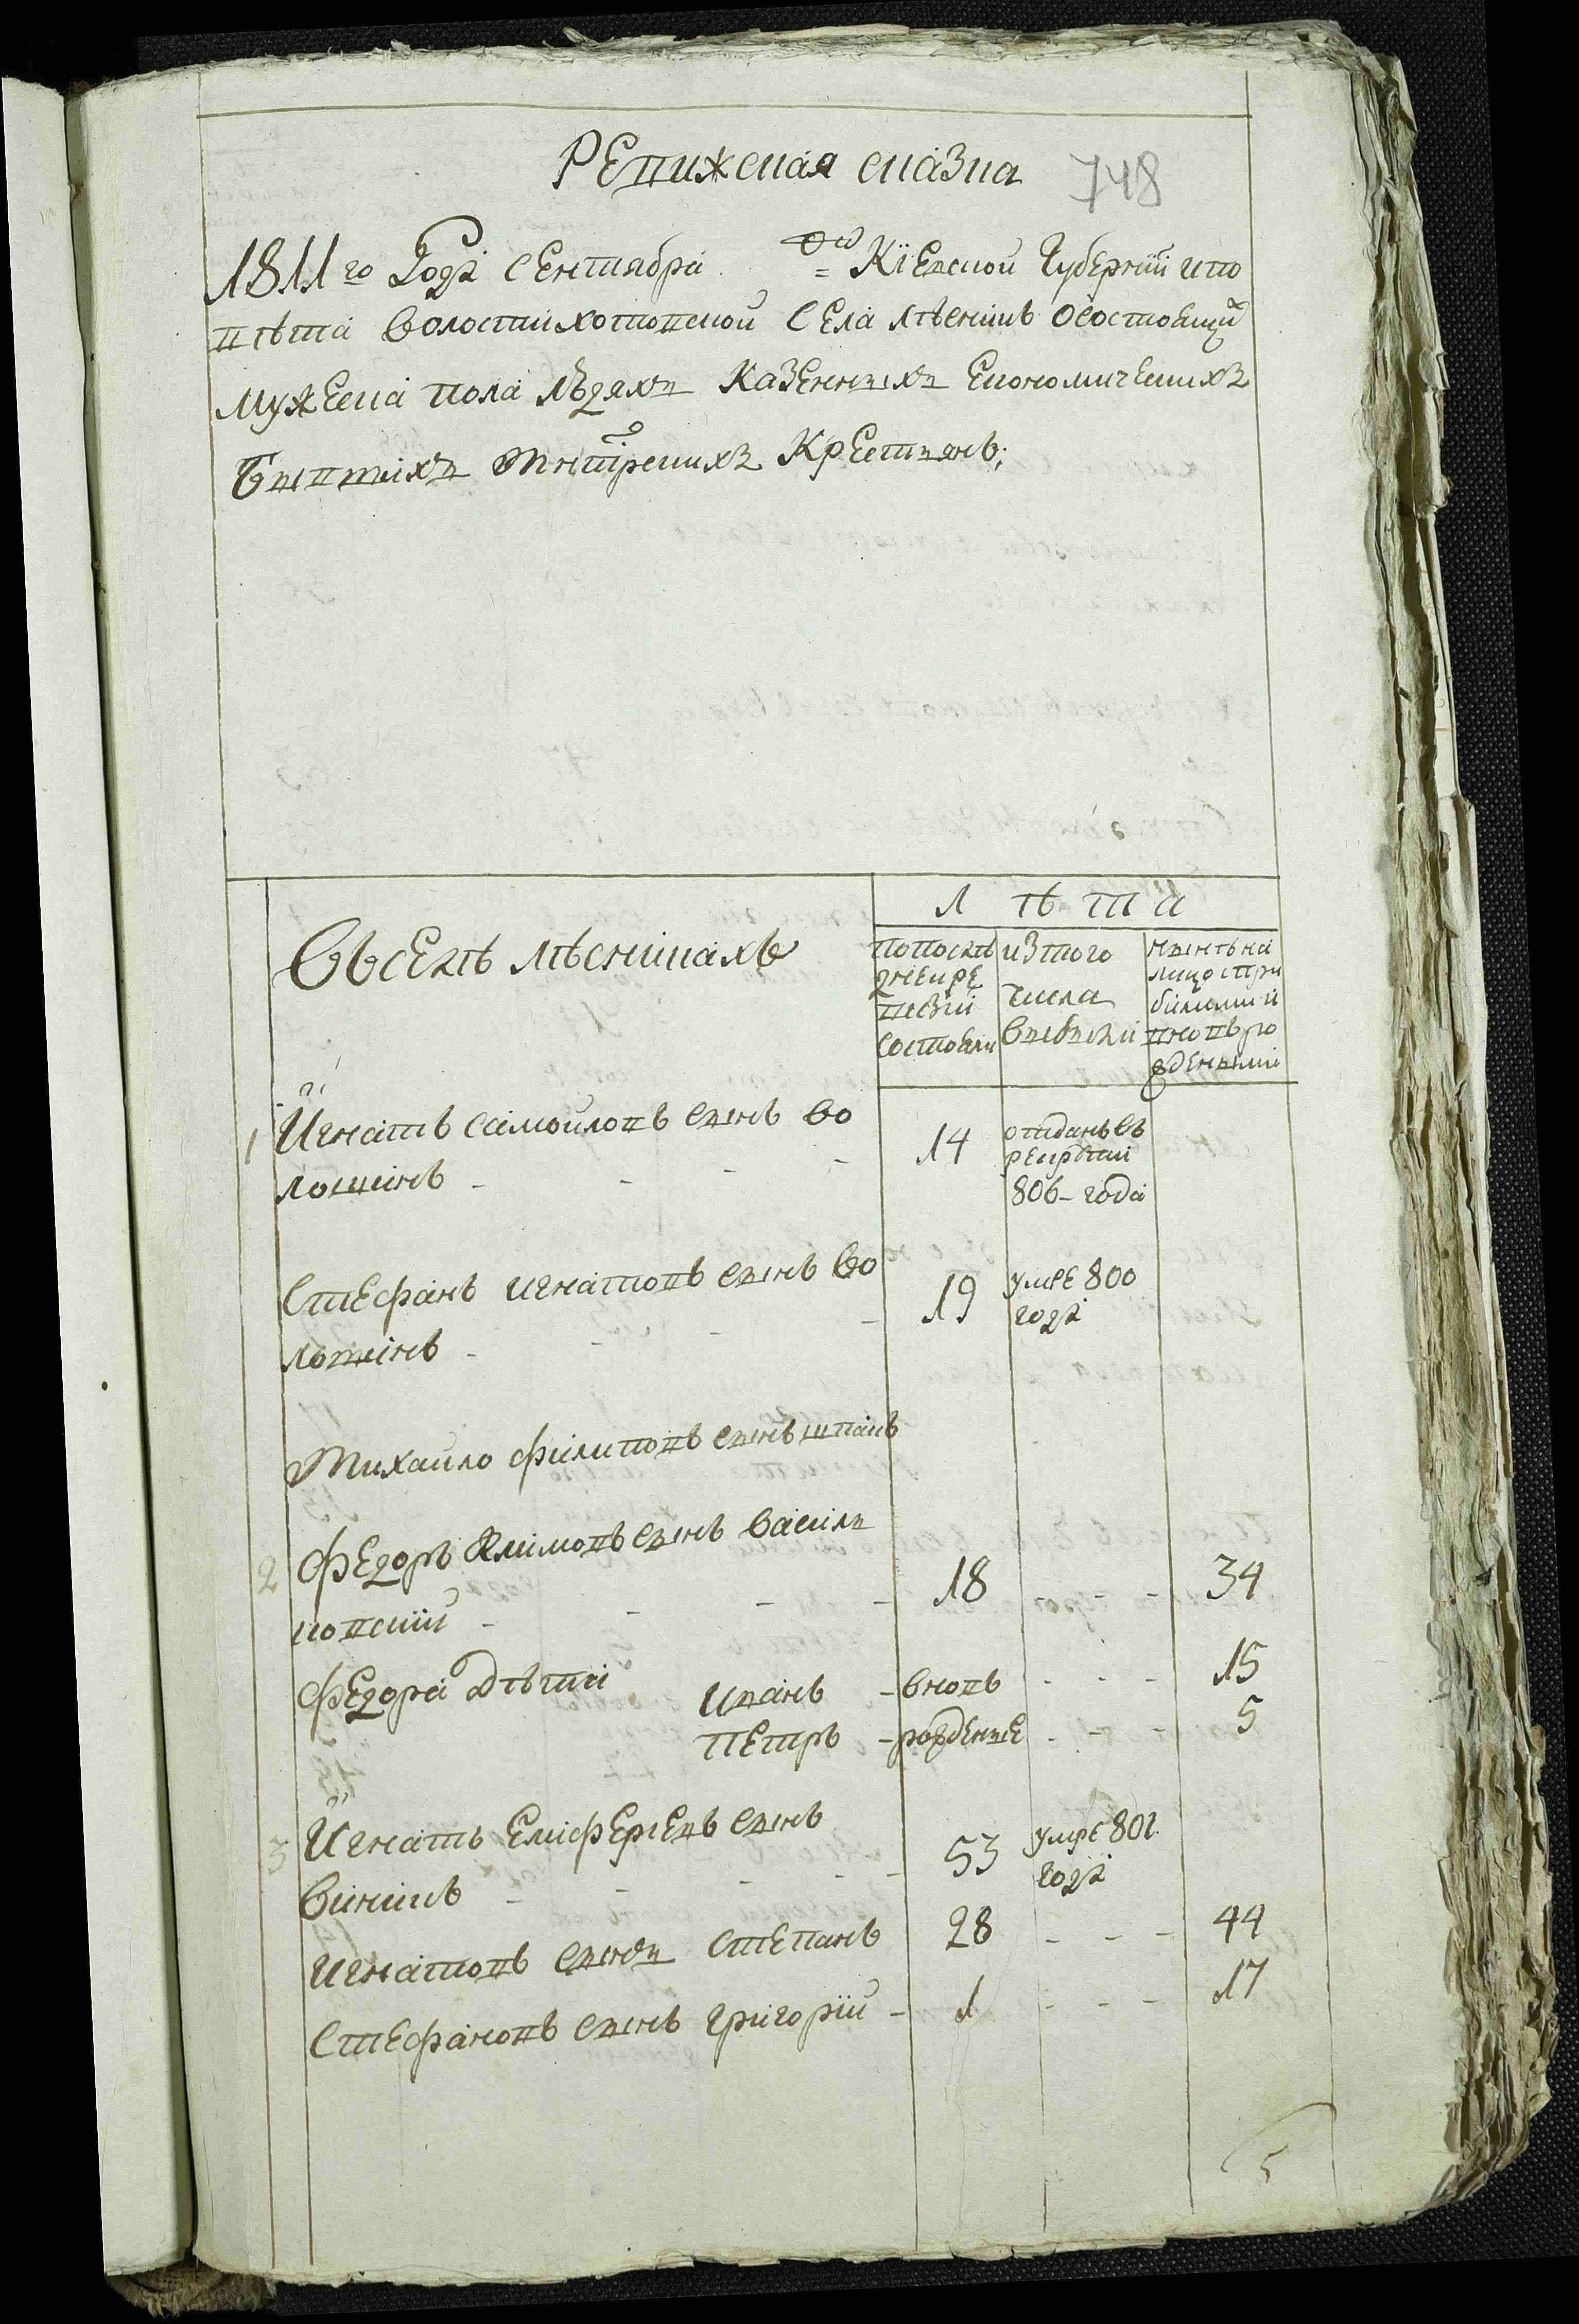 Ревижская сказка 748
1811го Года Сентября = дня Кіевской Губерніи и по
вѣта волости хотовской Села лѣсникъ Осостоящих
мужеска пола людяхъ Казенныхъ Економическихъ
Бывшихъ Митрскихъ Крестьянъ;
Лѣта
Въ селѣ лѣсникахъ
по послѣ
дней ре
визіи
состояли
из того
числа
выбыли
нынѣ на
лицо с при
былыми и
вновь ро
жденными
1 Игнатъ самойловъ сынъ во
лошинъ - - - - 14 отданъ въ
рекруты
806- года
Стефанъ игнатовъ сынъ во
лошинъ - - - - 19 умре 800
года
Михайло филиповъ сынъ шпакъ
2 Федоръ Климовъ сынъ василь
ковский - - - - 18 - - - 34
Федора дѣти Иванъ - вновь - - - 15
Петръ - рожденые - - - 5
3 Игнатъ Елисферіевъ сынъ
винникъ - - - - - 53 умре 801
года
Игнатовъ сынъ Степанъ 28 - - - 44
Стефановъ сынъ григорій - 1 - - - 17
5